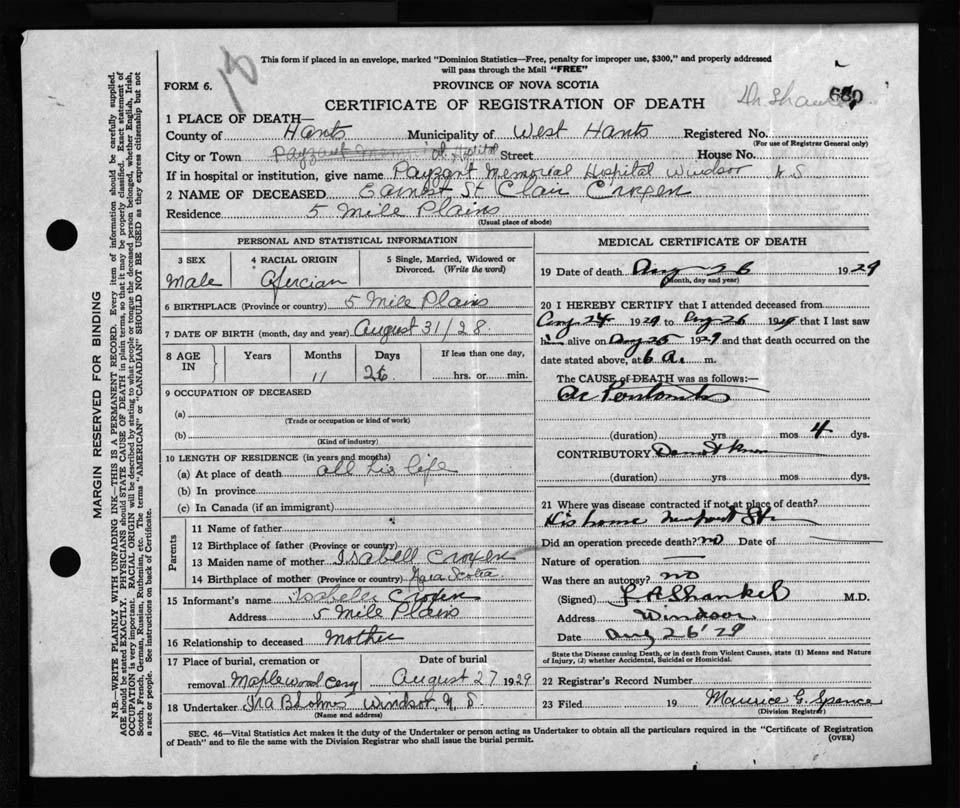 This form if placed in an envelope, marked "Dominion Statistics—Free, penalty for improper use, $300," and properly addressed
will pass through the Mail "FREE"
FORM 6.
PROVINCE OF NOVA SCOTIA
CERTIFICATE OF REGISTRATION OF DEATH
680
1 PLACE OF DEATH—
County of Hants Municipality of West Hants Registered No.
(For use of Registrar General only)
City or Town Payzant Memorial Hospital Street House No.
If in hospital or institution, give name Payzant Memorial Hospital Windsor N S
2 NAME OF DECEASED Earnest St Clair Croxen
Residence 5 Mile Plains
(Usual place of abode)
PERSONAL AND STATISTICAL INFORMATION
3 SEX 4 RACIAL ORIGIN 5 Single, Married, Widowed or
Divorced. (Write the word)
Male
6 BIRTHPLACE (Province or country) 5 Mile Plains
7 DATE OF BIRTH (month, day and year) August 31/28
8 AGE IN Years Months Days If less than one day,
11 26 hrs. or min.
9 OCCUPATION OF DECEASED
(a)
(Trade or occupation or kind of work)
(b)
(Kind of industry)
10 LENGTH OF RESIDENCE (in years and months)
(a) At place of death all his life
(b) In province
(c) In Canada (if an immigrant)
Parents
11 Name of father
12 Birthplace of father (Province or country)
13 Maiden name of mother Isabell Croxen
14 Birthplace of mother (Province or country) Nova Scotia
15 Informant's name Isabelle Croxen
Address 5 Mile Plains
16 Relationship to deceased Mother
17 Place of burial, cremation or Date of burial
removal Maplewood Cemy August 27 1929
18 Undertaker Ira B Lohnes Windsor, N. S.
(Name and address)
MEDICAL CERTIFICATE OF DEATH
19 Date of death Aug 26 1929
(Month, day and year)
20 I HEREBY CERTIFY that I attended deceased from
Aug 24 1929 to Aug 26 1929 that I last saw
him alive on Aug 25 1929 and that death occurred on the
date stated above, at 6 A. m.
The CAUSE of DEATH was as follows:—
(duration) yrs mos 4 dys.
CONTRIBUTORY Don't know
(duration) yrs. mos. dys.
21 Where was disease contracted if not at place of death?
His home Newport
Did an operation precede death? no Date of
Nature of operation
Was there an autopsy? no
(Signed) Shankel M.D.
Address Windsor
Date Aug 26 '29
State the Disease causing Death, or in death from Violent Causes, state (1) Means and Nature
of Injury, (2) whether Accidental, Suicidal or Homicidal.
22 Registrar's Record Number
23 Filed 19 Maurice G. Spence
(Division Registrar)
SEC. 46—Vital Statistics Act makes it the duty of the Undertaker or person acting as Undertaker to obtain all the particulars required in the "Certificate of Registration
of Death" and to file the same with the Division Registrar who shall issue the burial permit.
(OVER)
MARGIN RESERVED FOR BINDING
N.B.—WRITE PLAINLY WITH UNFADING INK—THIS IS A PERMANENT RECORD. Every item of information should be carefully supplied.
AGE should be stated EXACTLY. PHYSICIANS should STATE CAUSE OF DEATH in plain terms, so that it may be properly classified. Exact statement of
OCCUPATION is very important. RACIAL ORIGIN will be described by stating to what people or tongue the deceased person belonged, whether English, Irish,
Scotch, French, German, Russian, Ruthenian, etc. The terms "AMERICAN" or "CANADIAN" SHOULD NOT BE USED as they express citizenship but not
a race or people. See instructions on back of Certificate.